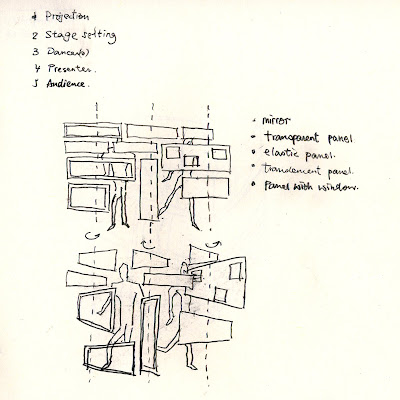 1 Projection
2 Stage setting
3 Dancer(s)
4 Presenter.
5 Audience.
• mirror
• transparent panel
• elastic panel.
• translement panel.
• Panel with window.